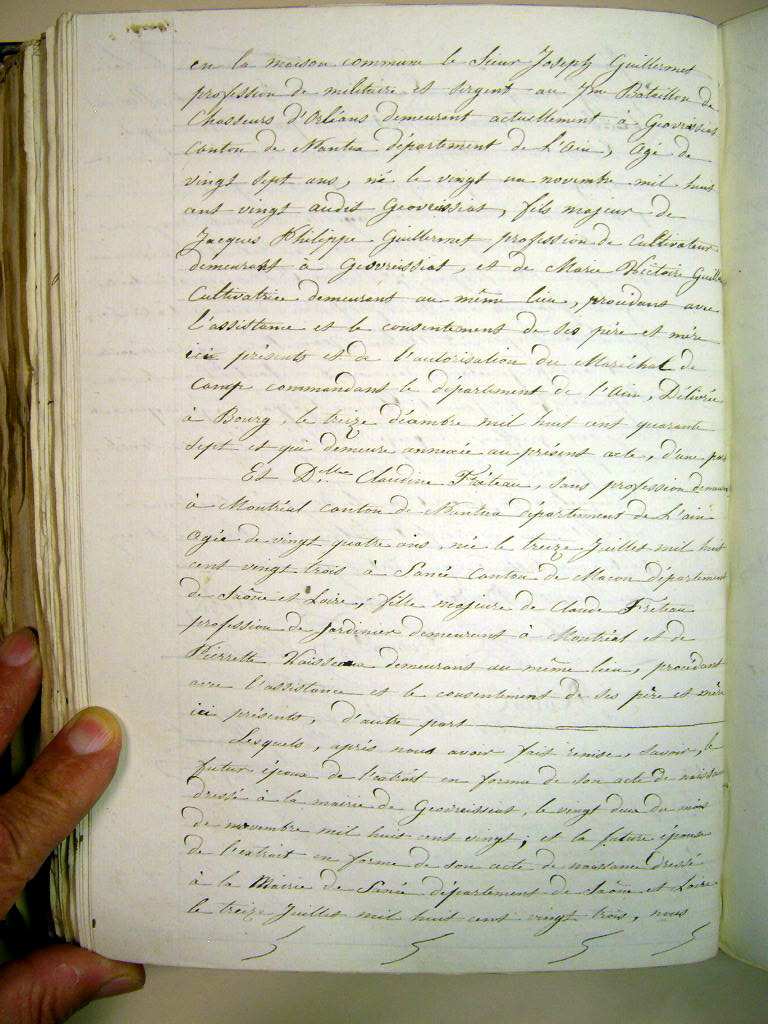 en la maison commune le Sieur Joseph Guillermet
profession de militaire et Sergent au 7me Bataillon de
Chasseurs d'Orléans demeurant actuellement à Geovreissiat
canton de Nantua département de L'Ain, Agé de
vingt sept ans, né le vingt un novembre mil huit
cent vingt audit Geovreissiat, fils majeur de
Jacques Philippe Guillermet profession de Cultivateur
demeurant à Geovreissiat, et de Marie Victoire
Cultivatrice demeurant au même lieu, procédant avec
l'assistance et le consentement de ses père et mère
ici présents et de l'autorisation du Maréchal de
Camp commandant le département de l'Ain, Délivrée
à Bourg, le treize décembre mil huit cent quarante
sept et qui demeure annexée au présent acte, d'une part
Et Dlle Claudine Fréteau, sans profession demeurant
à Montréal canton de Nantua département de L'ain
agée de vingt quatre ans, née le treize Juillet mil huit
cent vingt trois à Sancé Canton de Macon département
de Saône et Loire, fille majeure de Claude Fréteau
profession de Jardinier demeurant à Montréal et de
Pierrette demeurant au même lieu, procédant
avec l'assistance et le consentement de ses père et mère
ici présents, d'autre part
Lesquels, après nous avoir fait remise, savoir, le
futur époux de l'extrait en forme de son acte de naissance
dressé à la mairie de Geovreissiat, le vingt deux du mois
de novembre mil huit cent vingt; et la future épouse
de l'extrait en forme de son acte de naissance dressé
à la Mairie de Sancé département de Saône et Loire
le treize Juillet mil huit cent vingt trois, nous